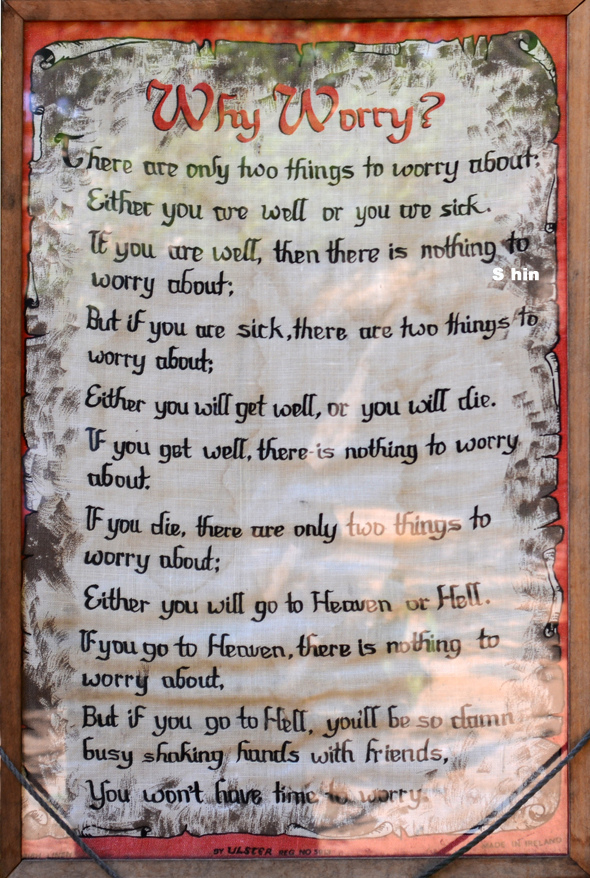 Why Worry?
There are only two things to worry about:
Either you are well or you are sick.
If you are well, then there is nothing to
S hin
worry about;
But if you are sick, there are two things to
worry about;
Either you will get well, or you will die.
If you get well, there is nothing to worry
about.
If you die, there are only two things to
worry about;
Either you will go to Heaven or Hell.
If you go to Heaven, there is nothing to
worry about,
But if you go to Hell, you'll be so damn
busy shaking hands with friends,
You won't have time to worry.
BY ULSTER REG NO
MADE IN IRELAND